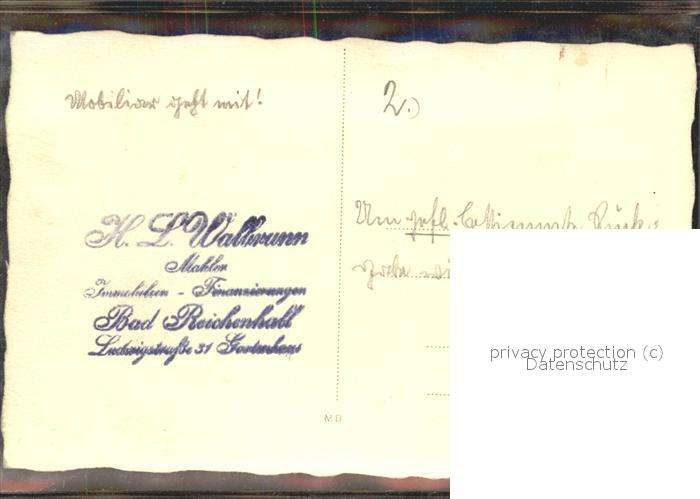 Mobiliar geht mit!
2.)
H. L. Walbrunn
Makler
Immobilien - Finanzierungen
Bad Reichenhall
Ludwigstraße 31 Gartenhaus
Um gefl. bestimmte Rück-
gabe
MD
privacy protection (c)
Datenschutz